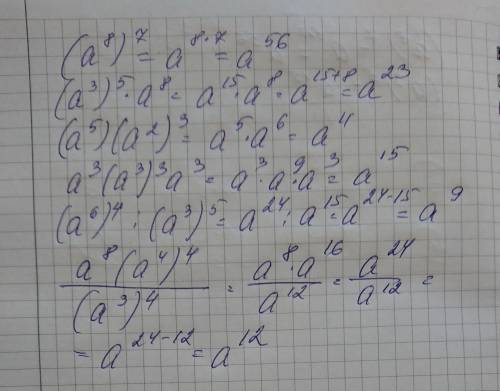 (a⁸)⁷ = a⁸·⁷ = a⁵⁶
(a³)⁵ · a⁸ = a¹⁵ · a⁸ = a¹⁵⁺⁸ = a²³
(a⁵)(a²)³ = a⁵ · a⁶ = a⁴
a³(a³)³a³ = a³ · a⁹ · a³ = a¹⁵
(a⁶)⁴ : (a³)⁵ = a²⁴ : a¹⁵ = a²⁴⁻¹⁵ = a⁹
a⁸(a⁴)⁴ / (a³)⁴ = a⁸ · a¹⁶ / a¹² = a²⁴ / a¹² =
= a²⁴⁻¹² = a¹²